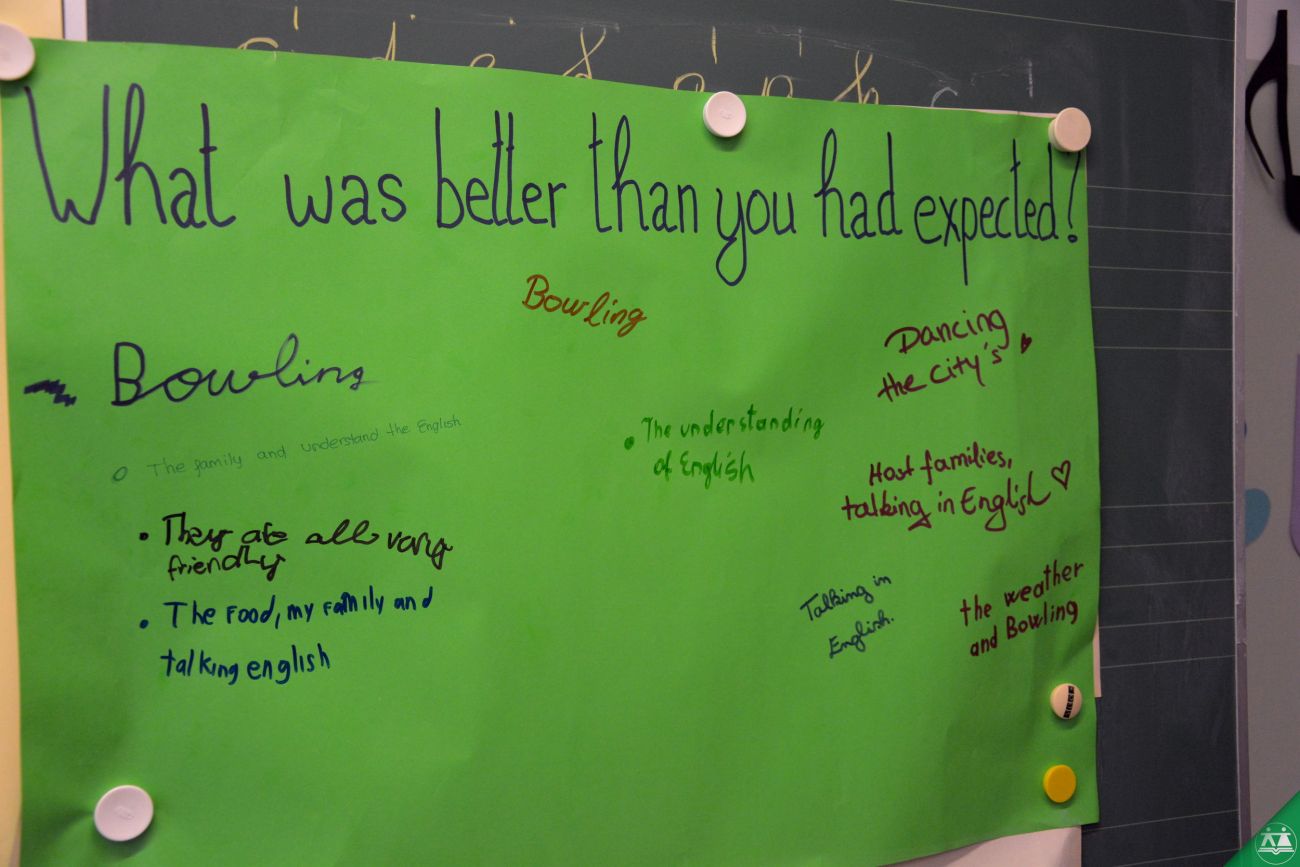 What was better than you had expected?
Bowling
Bowling
The family and understand the English
They are all vary
friendly
The Food, my Family and
talking english
The understanding
of English
Dancing
the City's
Host families,
talking in English
Talking in
English.
the weather
and Bowling